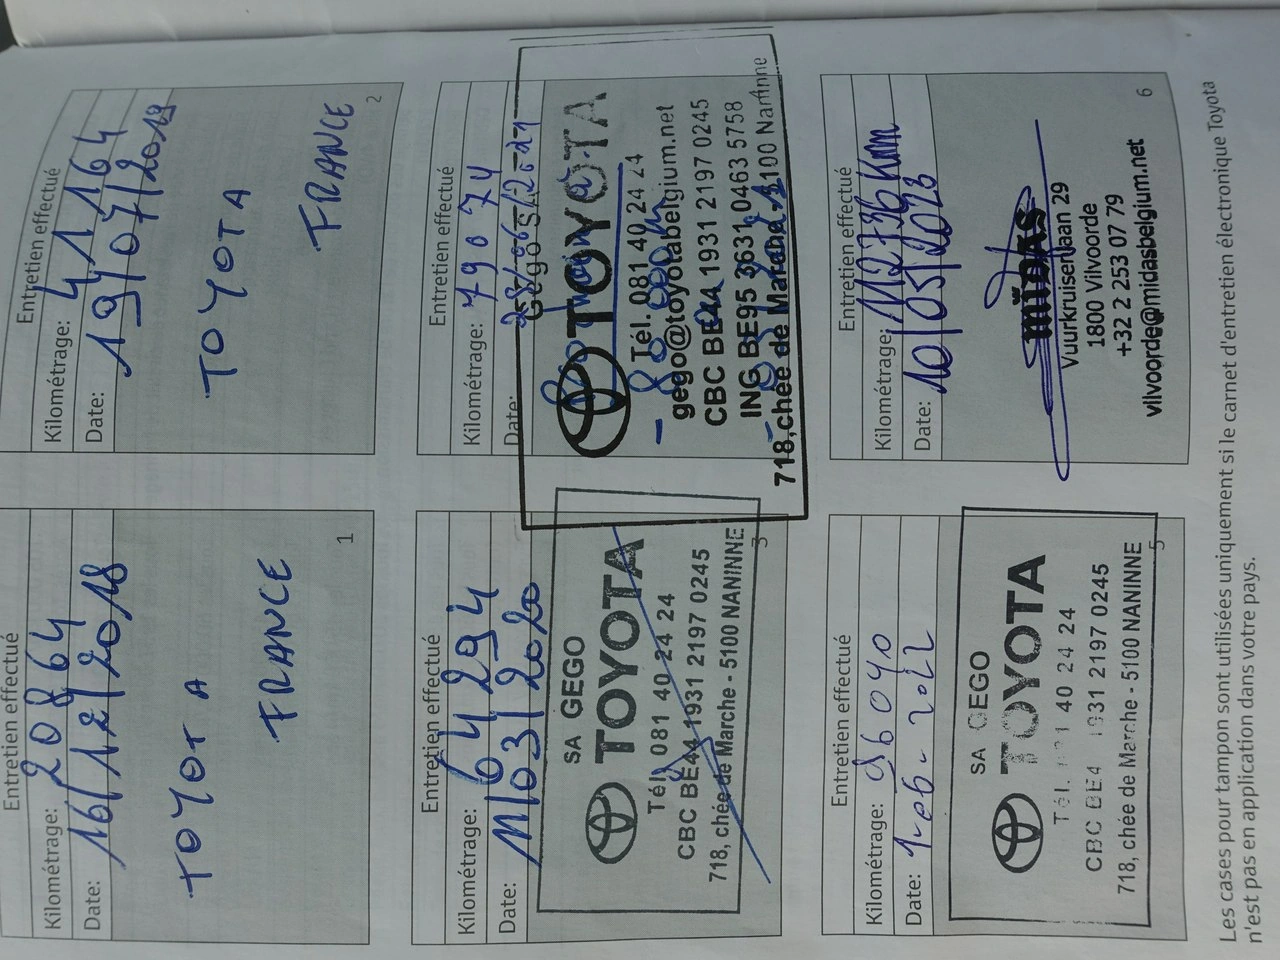 Entretien effectué
Kilométrage: 20864
Date: 16/12/2018
TOYOTA
FRANCE
1
Entretien effectué
Kilométrage: 41164
Date: 19/07/2019
TOYOTA
FRANCE
2
Entretien effectué
Kilométrage: 64294
Date: 11/03/2020
SA GEGO
TOYOTA
Tél. 081 40 24 24
CBC BE44 1931 2197 0245
718, chée de Marche - 5100 NANINNE
3
Entretien effectué
Kilométrage: 79074
Date:
Gego S.A
TOYOTA
Tél. 081 40 24 24
gego@toyotabelgium.net
CBC BE44 1931 2197 0245
ING BE95 3631 0463 5758
718,chée de Marche 5100 Naninne
Entretien effectué
Kilométrage: 96040
Date: 1-06-2022
SA GEGO
TOYOTA
Tél. 081 40 24 24
CBC BE4 1931 2197 0245
718, chée de Marche - 5100 NANINNE
5
Entretien effectué
Kilométrage: 112736 Km
Date: 10/05/2023
midas
Vuurkruisenlaan 29
1800 Vilvoorde
+32 2 253 07 79
vilvoorde@midasbelgium.net
6
Les cases pour tampon sont utilisées uniquement si le carnet d'entretien électronique Toyota
n'est pas en application dans votre pays.